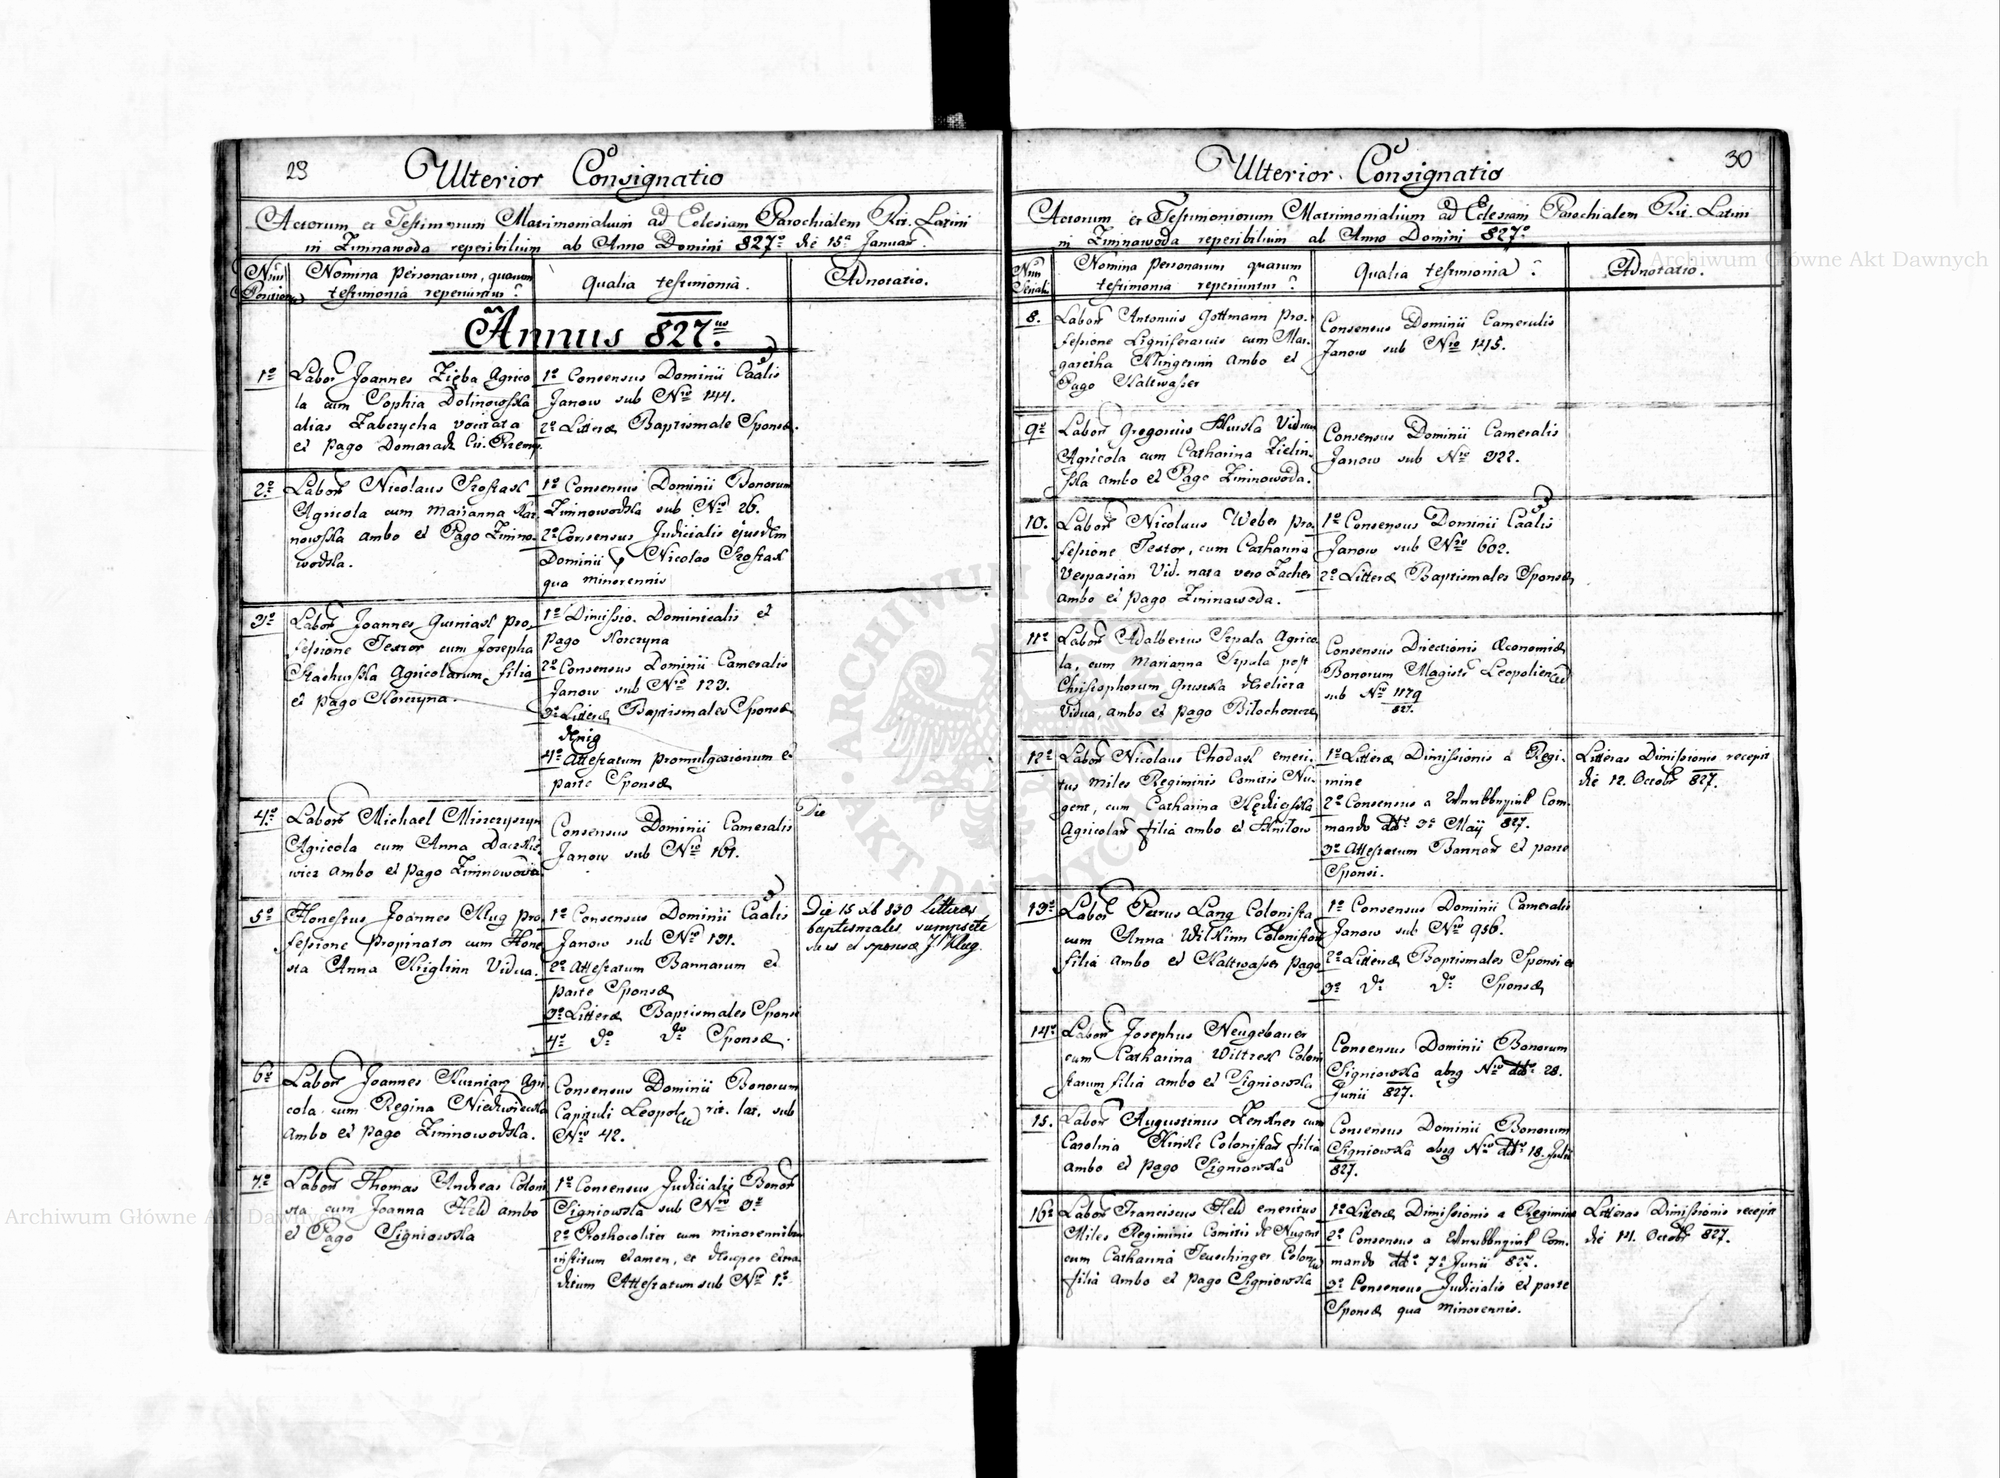 23
Ulterior Consignatio
Actorum et Testimonium Matrimonialium ad Eclesiam Parochialem Rit. Latini
in Ziminawoda reperibilium ab Anno Domini 827º die 15ª Januar.
Nrus Positionis
Nomina personarum, quarum
testimonia reperiuntur?
Qualia testimonia.
Adnotatio.
Annus 827us
1º Labor Joannes Zięba Agrico
la cum Sophia Dolinowska
alias Zaberzycha vocitata
ex pago Domaradz Cir.
1º Consensus Dominii Caālis
Janow sub Nro 144.
2º Litteræ Baptismale Sponsæ.
2º Labor Nicolaus
Agricola cum Marianna
ambo ex Pago Zimno-
wodska.
1º Consensus Dominii Bonorum
Zimnowodska sub Nro 26.
2º Consensus Judicialis ejusdem
Dominii p Nicolao
qua minorennis
3º Labor Joannes Gurniak pro-
fessione Textor cum Josepha
Agricolarum filia
ex pago Korczyna.
1º Dimissio. Dominicalis ex
pago Korczyna
2º Consensus Dominii Cameralis
Janow sub Nro 123.
3º Litteræ Baptismales Sponsæ
4º Attestatum promulgationum ex
parte Sponsæ
4º Labor Michael
Agricola cum Anna
ambo ex pago Zimnowoda
Consensus Dominii Cameralis
Janow sub Nro 161.
Die
5º Honestus Joannes Klug pro
fessione Propinator cum Hone
sta Anna Kiiglinn Vidua.
1º Consensus Dominii Caālis
Janow sub Nro 191.
2º Attestatum Bannarum ex
parte Sponsæ
3º Litteræ Baptismales Sponsi
4º dº dº Sponsæ.
Die 15 xb 830 litteras
baptismales
et sponsæ J Klug.
6º Labor Joannes Kurniarz Agri
cola cum Regina Niedzwiecka
ambo ex pago Zimnowodska.
Consensus Dominii Bonorum
Capituli Leopol rit. lat. sub
Nro 42.
7º Labor Thomas Andreas Coloni
sta cum Joanna Held ambo
ex Pago Signiowska
1º Consensus Judicialis Bonor
Signiowska sub Nro 3º
2º Prothocoliter cum minorennibus
institum examen, et desuper
ditum Attestatum sub Nro 1º
30
Ulterior Consignatio
Actorum et Testimoniorum Matrimonialium ad Eclesiam Parochialem Rit. Latini
in Ziminawoda reperibilium ab Anno Domini 827º
Nrus Serial.
Nomina personarum quarum
testimonia reperiuntur?
Qualia testimonia?
Adnotatio.
8. Labor Antonius Gottmann pro-
fessione Ligniferarius cum Mar-
garetha Klingerin ambo ex
Pago Kaltwasser
Consensus Dominii Cameralis
Janow sub Nro 145.
9º Labor Gregorius Viduus
Agricola cum Catharina Zielin-
ska ambo ex Pago Zimnowoda.
Consensus Dominii Cameralis
Janow sub Nro 322.
10. Labor Nicolaus Weber pro
fessione Textor, cum Catharina
Vespasian Vid. nata vero Zacher
ambo ex pago Zimnawoda.
1º Consensus Dominii Caālis
Janow sub Nro 602.
2º Litteræ Baptismales Sponsæ
11º Labor Adalbertus Szpala Agrico
la, cum Marianna Szpala post
Christophorum relicta
Vidua, ambo ex pago
Consensus Directionis Œconomiæ
Bonorum Magistr Leopoliensis
sub Nro 1179
827.
12º Labor Nicolaus Chodak emeri-
tus miles Regiminis Comitis Nu-
gent, cum Catharina
Agricolar filia ambo ex
1º Litteræ Dimissionis a Regi-
mine
2º Consensus a Com-
mando ddº 3º Maÿ 827.
3º Attestatum Bannar ex parte
Sponsi.
Litteras Dimissionis recepit
die 12. Octobr 827.
13º Labor Petrus Lang Colonista
cum Anna Wilkinn Colonistar
filia ambo ex Kaltwasser pago
1º Consensus Dominii Cameralis
Janow sub Nro 956.
2º Litteræ Baptismales Sponsi et
3º dº dº Sponsæ
14º Labor Josephus Neugebauer
cum Catharina Coloni
starum filia ambo ex Signiowska
Consensus Dominii Bonorum
Signiowska absq Nro ddº 28.
Junii 827.
15. Labor Augustinus Zenkner cum
Carolina Colonistar filia
ambo ex pago Signiowska
Consensus Dominii Bonorum
Signiowska absq Nro ddº 18. Julii
827.
16º Labor Franciscus Held emeritus
Miles Regiminis Comitis de Nugent
cum Catharina Teuschinger Colon
filia ambo ex pago Signiowska
1º Litteræ Dimissionis a Regimine
2º Consensus a Com-
mando ddº 7º Junii 827.
3º Consensus Judicialis ex parte
Sponsæ qua minorennis.
Litteras Dimissionis recepit
die 14. Octobr 827.
Archiwum Główne Akt Dawnych
Archiwum Główne Akt Dawnych
ARCHIWUM GŁÓWNE AKT DAWNYCH